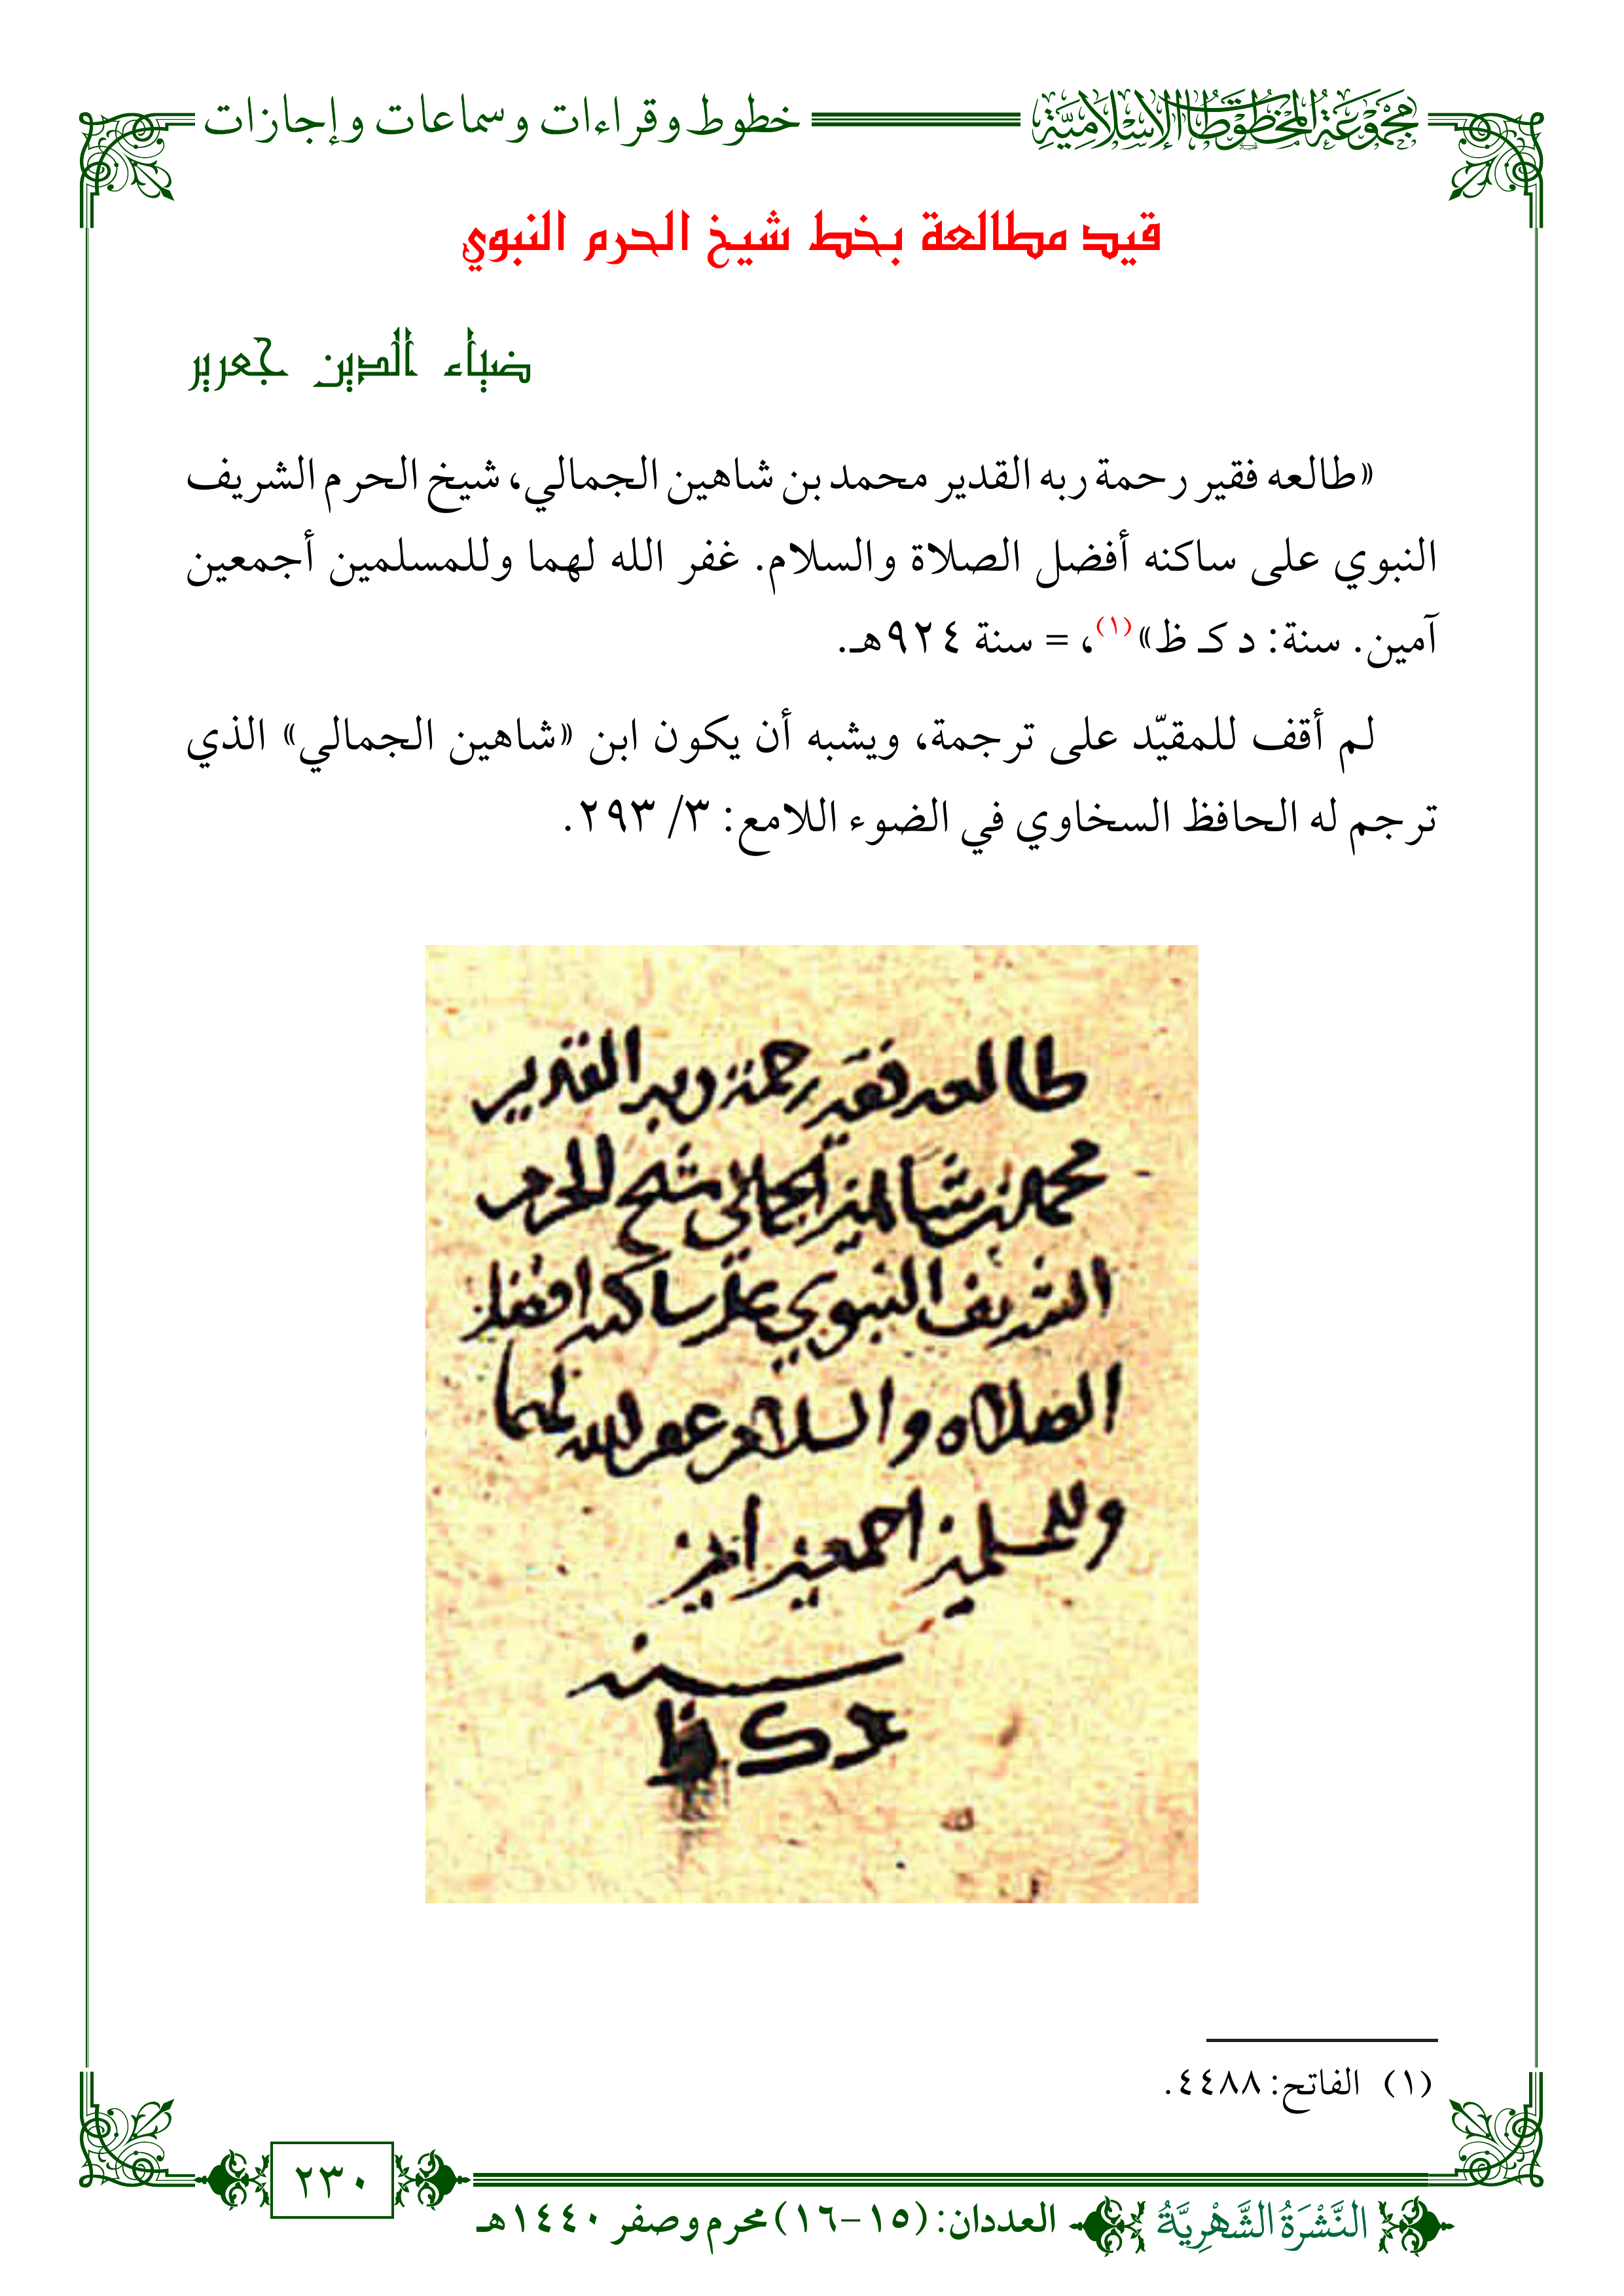 مَجْمُوعَةُ المَخْطُوطَاتِ الإِسْلَامِيَّةِ
خطوط وقراءات وسماعات وإجازات
قيد مطالعة بخط شيخ الحرم النبوي
ضياء الدين جعرير
«طالعه فقير رحمة ربه القدير محمد بن شاهين الجمالي، شيخ الحرم الشريف
النبوي على ساكنه أفضل الصلاة والسلام. غفر الله لهما وللمسلمين أجمعين
آمين. سنة: د كـ ظ»(١)، = سنة ٩٢٤هـ.
لم أقف للمقيّد على ترجمة، ويشبه أن يكون ابن «شاهين الجمالي» الذي
ترجم له الحافظ السخاوي في الضوء اللامع: ٣/ ٢٩٣.
طالعه فقير رحمة ربه القدير
محمد بن شاهين الجمالي شيخ الحرم
الشريف النبوي على ساكنه افضل
الصلاه والسلام غفر الله لهما
وللمسلمين اجمعين امين
سنة
د ك ظ
(١) الفاتح: ٤٤٨٨.
٢٣٠
النَّشْرَةُ الشَّهْرِيَّةُ
العددان: (١٥-١٦) محرم وصفر ١٤٤٠هـ